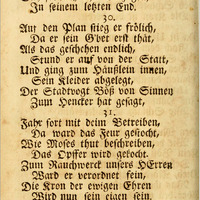 In seinem letzten End.
30.
Auf den Plan stieg er frölich,
Da er sein G'bet erst thät,
Als das geschehen endlich,
Stund er auf von der Statt,
Und ging zum Häußlein innen,
Sein Kleider abgelegt,
Der Stadtvogt Böß von Sinnen
Zum Hencker hat gesagt,
31.
Fahr fort mit deim Betreiben,
Da ward das Feur gesocht,
Wie Moses thut beschreiben,
Das Opffer wird gekocht.
Zum Rauchwerck unsers HErren
Ward er verordnet fein,
Die Kron der ewigen Ehren
Wird nun sein eigen sein.